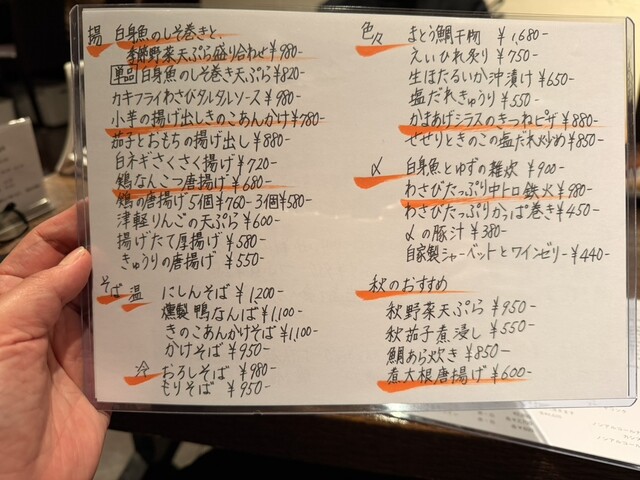 揚 白身魚のしそ巻きと、
季節野菜天ぷら盛り合わせ ¥980-
単品 白身魚のしそ巻き天ぷら ¥820-
カキフライわさびタルタルソース ¥980-
小芋の揚げ出しきのこあんかけ ¥780-
茄子とおもちの揚げ出し ¥880-
白ネギさくさく揚げ ¥720-
鶏なんこつ唐揚げ ¥680-
鶏の唐揚げ 5個 ¥760- 3個 ¥580-
津軽りんごの天ぷら ¥600-
揚げたて厚揚げ ¥580-
きゅうりの唐揚げ ¥550-
そば 温 にしんそば ¥1200-
燻製鴨なんば ¥1,100-
きのこあんかけそば ¥1,100-
かけそば ¥950-
冷 おろしそば ¥980
もりそば ¥950-
色々 まとう鯛干物 ¥1,680-
えいひれ炙り ¥750-
生ほたるいか沖漬け ¥650-
塩だれきゅうり ¥550-
かまあげシラスのきつねピザ ¥880-
せせりときのこの塩だれ炒め ¥850-
〆 白身魚とゆずの雑炊 ¥900-
わさびたっぷり中トロ鉄火 ¥980-
わさびたっぷりかっぱ巻き ¥450-
〆の豚汁 ¥380-
自家製シャーベットとワインゼリー ¥440-
秋のおすすめ
秋野菜天ぷら ¥950-
秋茄子煮浸し ¥550-
鯛あら炊き ¥850-
煮大根唐揚げ ¥600-